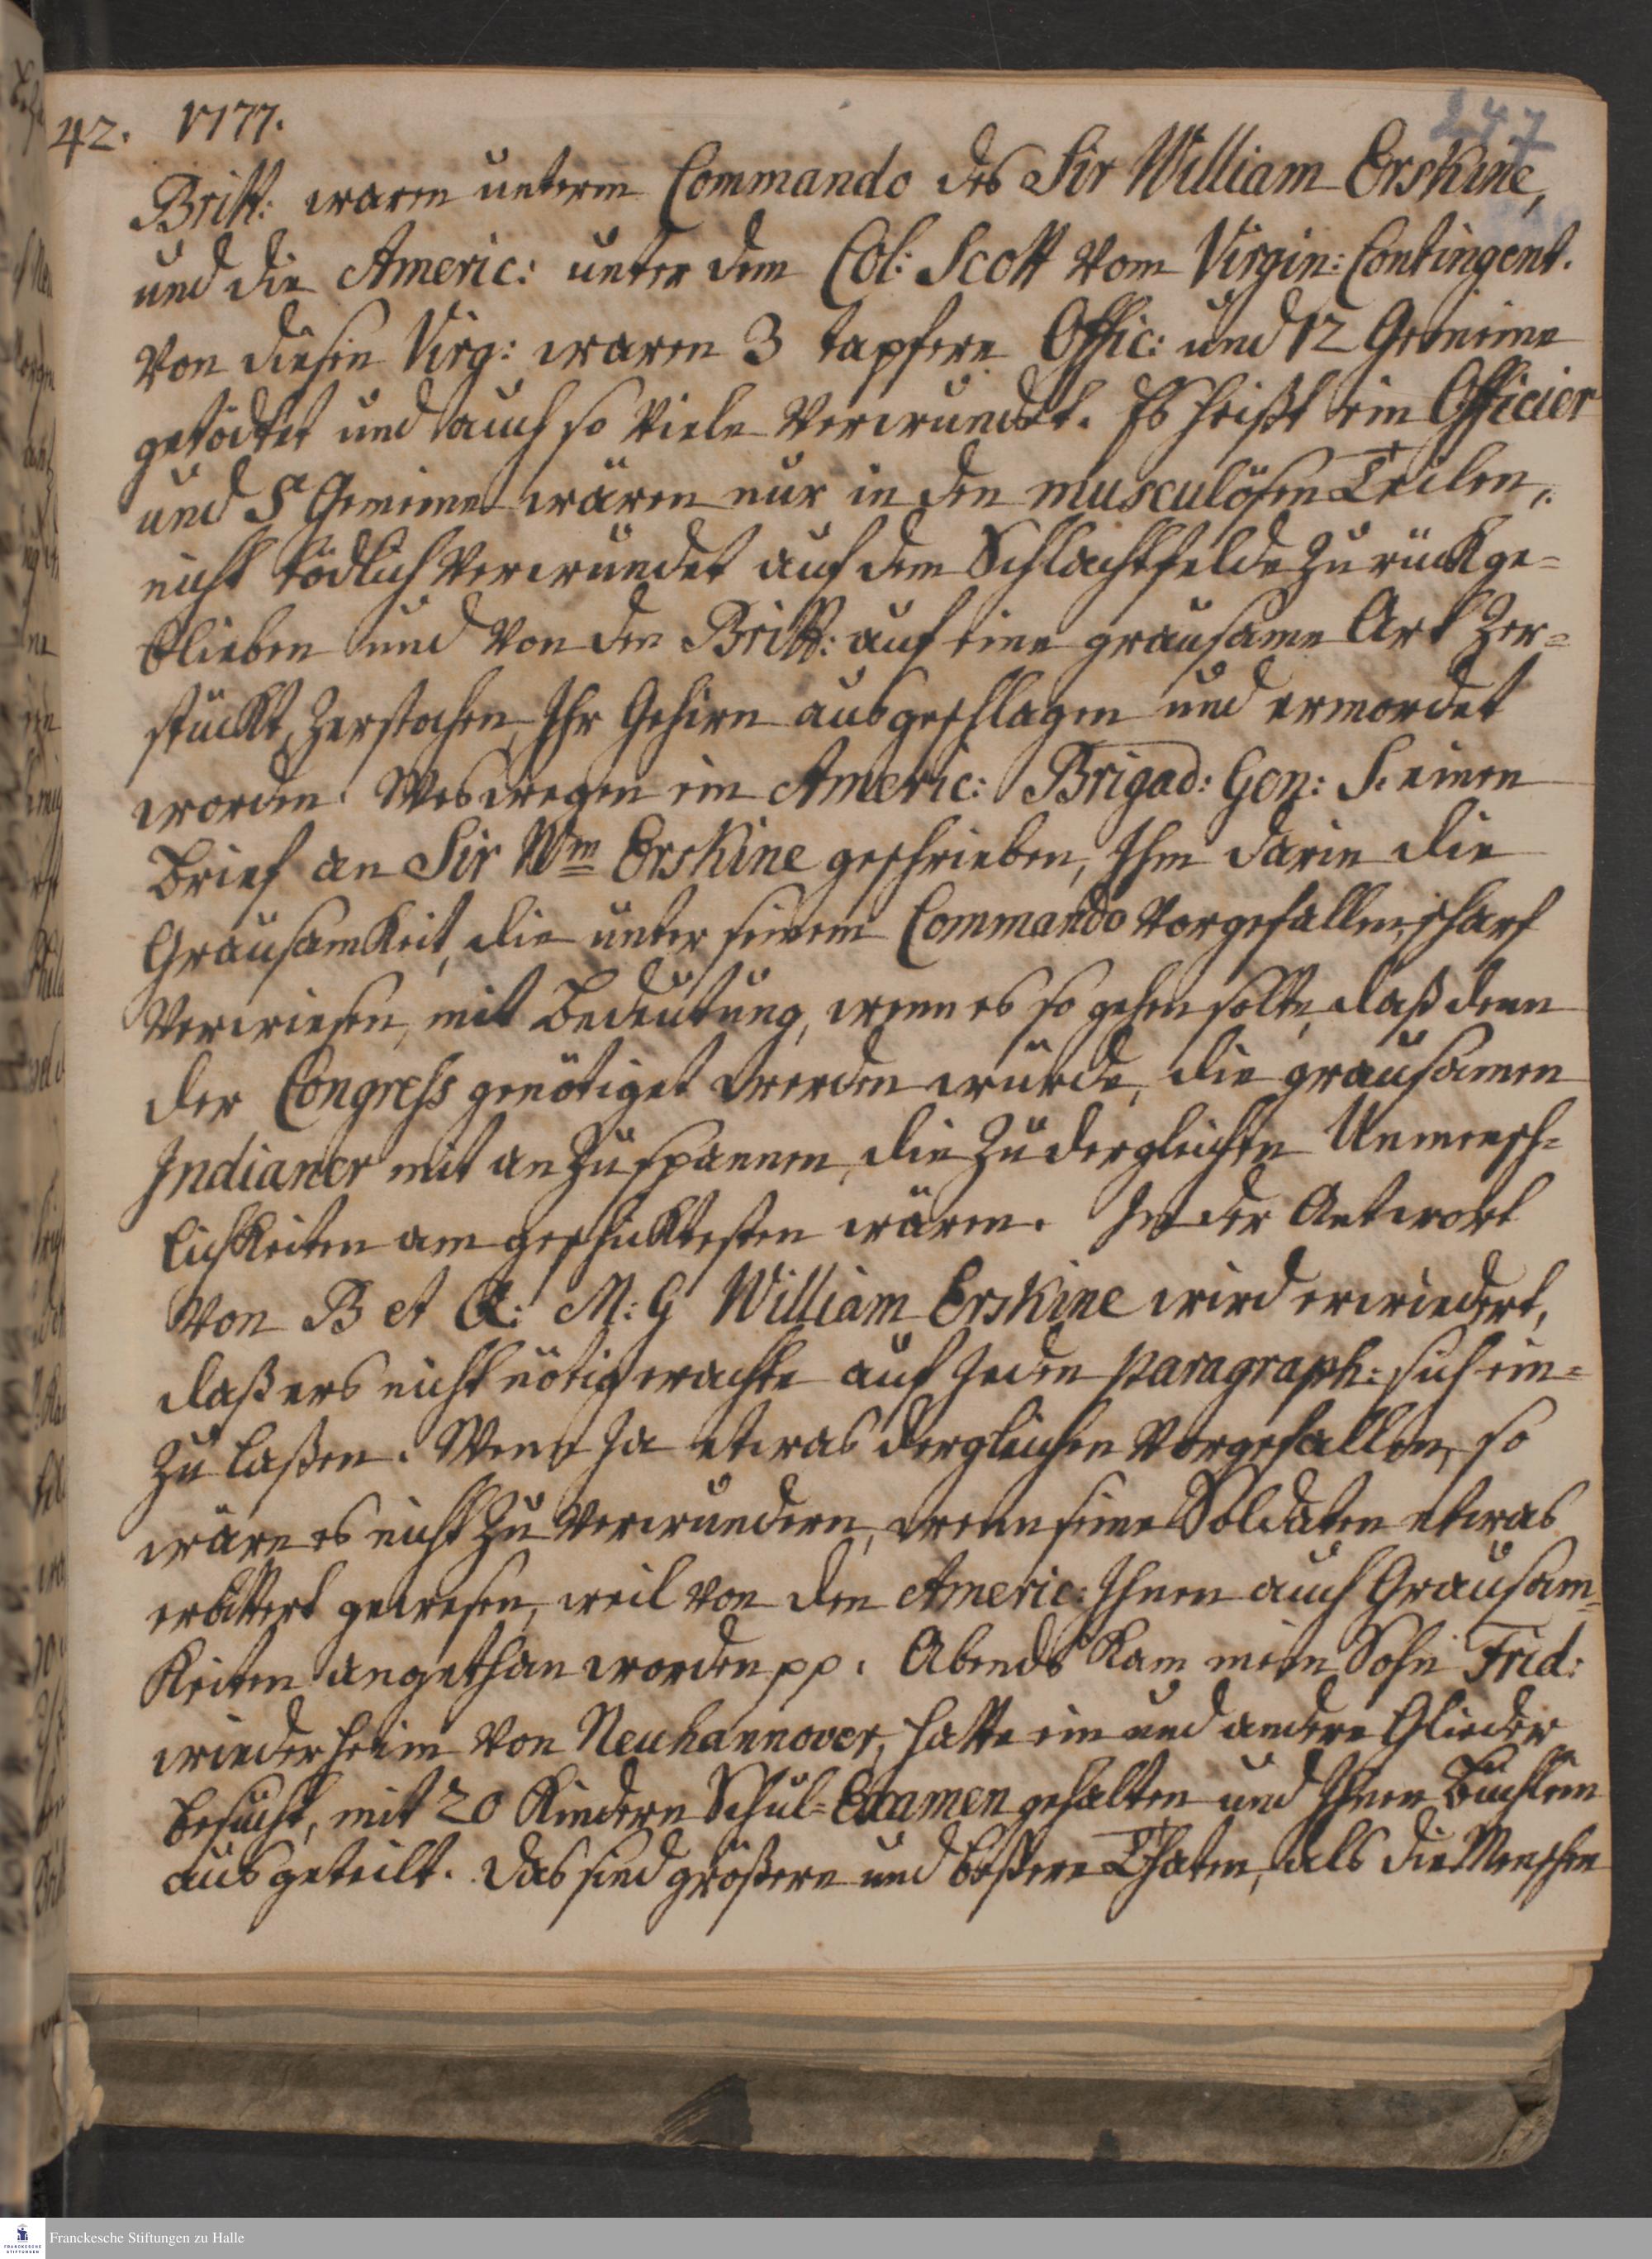 42. 1777.
247
Britt: waren unterm Commando des Sir William Erskine,
und die Americ: unter dem Col: Scott vom Virgin: Contingent.
Von diesen Virg: waren 3 tapfere Offic: und 12 Gemeine
getödtet und auch so viele verwundet. Es heißt ein Officier
und 5 Gemeine wären nur in den musculösen Teilen,
nicht tödlich verwundet auf dem Schlachtfelde zurückge=
blieben und von den Britt: auf eine grausame Art zer=
stückt, zerstochen, Ihr Gehirn ausgeschlagen und ermordet
worden. Weswegen ein Americ: Brigad: Gen: S. einen
Brief an Sir Wm Erskine geschrieben, Ihm darin die
Grausamkeit, die unter seinem Commando vorgefallen, scharf
verwiesen, mit Bedeutung, wenn es so gehen solte, daß denn
der Congress genötiget werden würde, die grausamen
Indianer mit anzuspannen, die zu dergleichen Unmensch=
lichkeiten am geschicktesten wären. In der Antwort
von B et Q: M: G William Erskine wird erwiedert,
daß ers nicht nötig erachte auf jeden paragraph: sich ein=
zu laßen. Wenn ja etwas dergleichen vorgefallen, so
wäre es nicht zu verwundern, wenn seine Soldaten etwas
erbittert gewesen, weil von den Americ: Ihnen auch Grausam=
keiten angethan worden pp. Abends kam mein Sohn Frid:
wieder heim von Neuhannover, hatte ein und andere Glieder
besucht, mit 20 Kindern Schul=Examen gehalten und Ihnen Büchlein
ausgeteilt. Das sind größere und beßere Thaten, als die Menschen
Franckesche Stiftungen zu Halle
FRANCKESCHE STIFTUNGEN